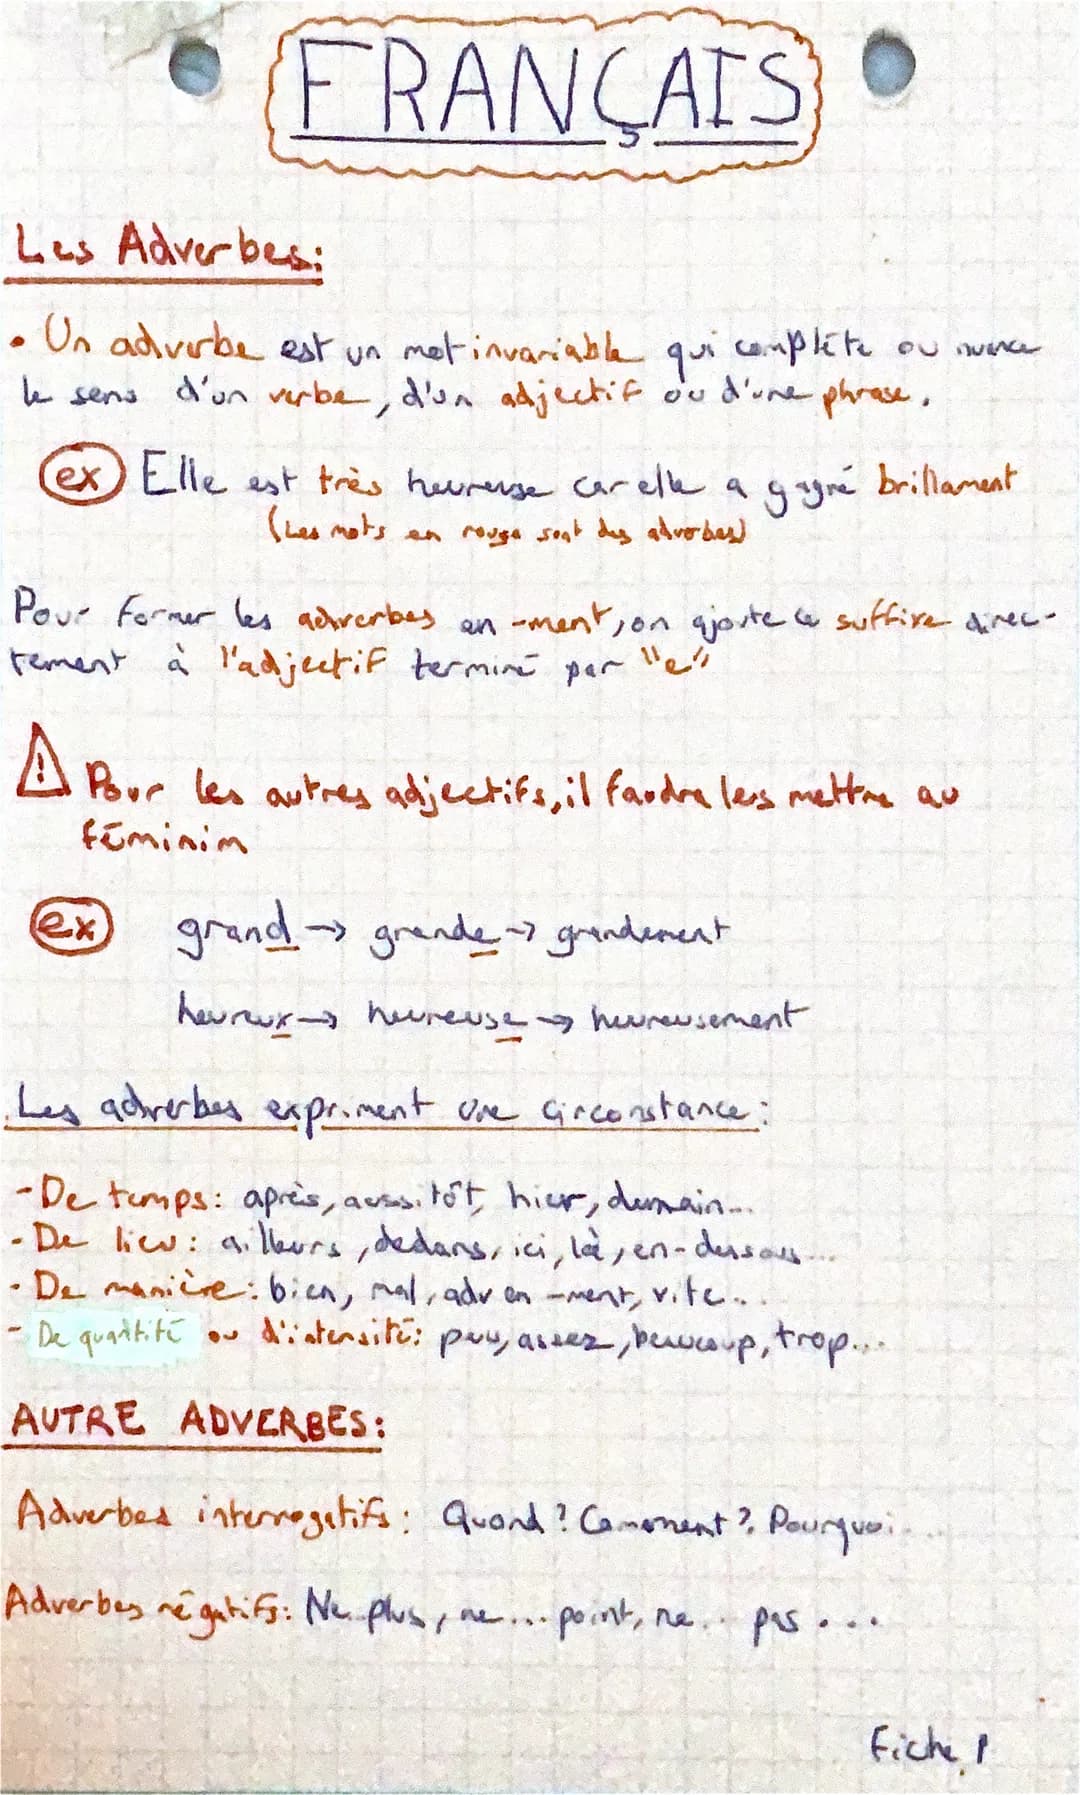 FRANÇAIS
Les Adverbes:
• Un adverbe est un mot invariable qui complète ou nuance
le sens d'un verbe, d'un adjectif ou d'une phrase.
ex Elle est très heureuse car elle a gagné brillament
(Les mots en rouge sont des adverbes)
Pour former les adverbes en -ment, on ajoute ce suffixe direc-
tement à l'adjectif terminé par "e"
! Pour les autres adjectifs, il faudra les mettre au
féminim
ex grand → grande → grandement
heureux → heureuse → heureusement
Les adverbes expriment une circonstance:
- De temps: après, aussitôt, hier, demain...
- De lieu: ailleurs, dedans, ici, là, en-dessous...
- De manière: bien, mal, adv en -ment, vite...
- De quantité ou d'intensité: peu, assez, beaucoup, trop...
AUTRE ADVERBES:
Adverbes interrogatifs: Quand? Comment? Pourquoi...
Adverbes négatifs: Ne plus, ne... point, ne... pas...
Fiche 1